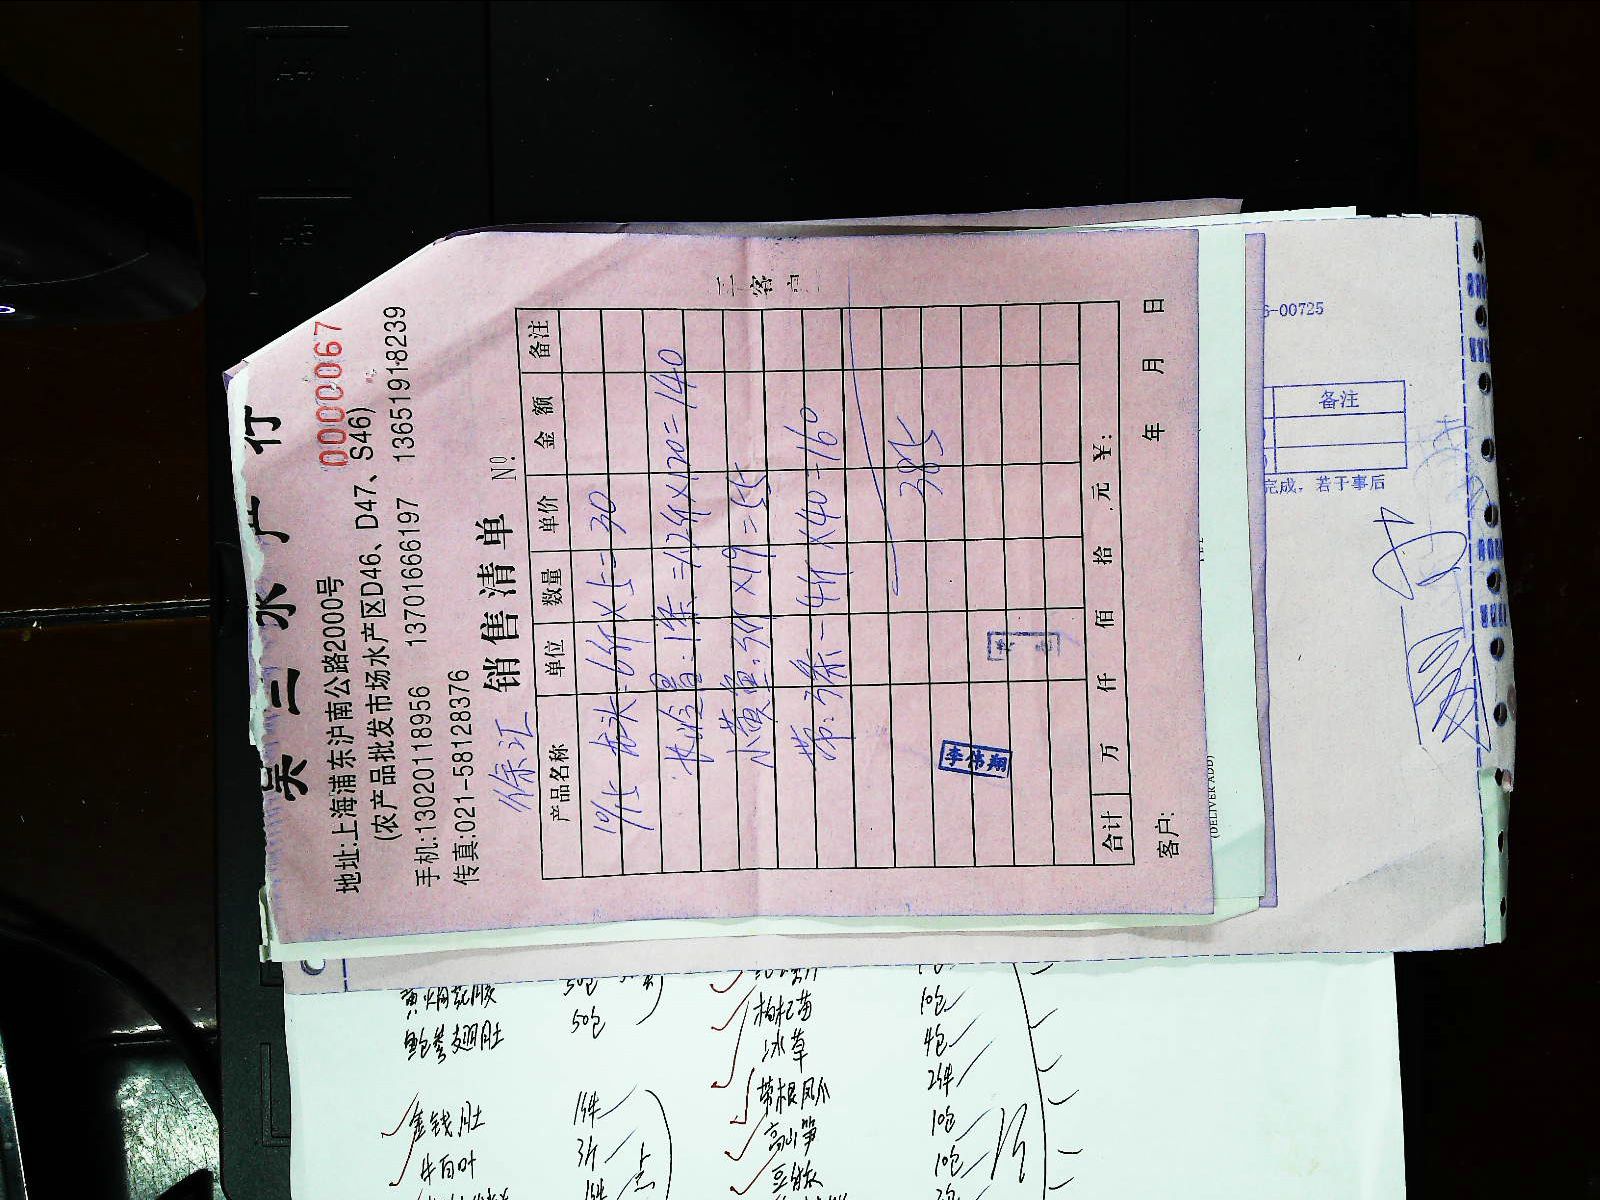 吴三水产行
地址:上海浦东沪南公路2000号
(农产品批发市场水产区D46、D47、S46)
手机:13020118956 13701666197 13651918239
传真:021-58128376
销售清单 №. 0000067
徐汇
产品名称 单位 数量 单价 金额 备注
10/15 龙头:6斤×5=30
1条=1.2斤×120=140
小黄鱼:3斤×19=55
带:3条-4斤×40=160
385
李伟翔
合计 万 仟 佰 拾 元 ¥:
客户: 年 月 日
6-00725
备注
完成,若于事后
(DELIVER ADD)
50包
鲍参翅肚 50包
金钱肚 1件
牛百叶 3斤
1件
枸杞苗 10包
冰草 4包
带根凤爪 2件
高山笋 10包
10包